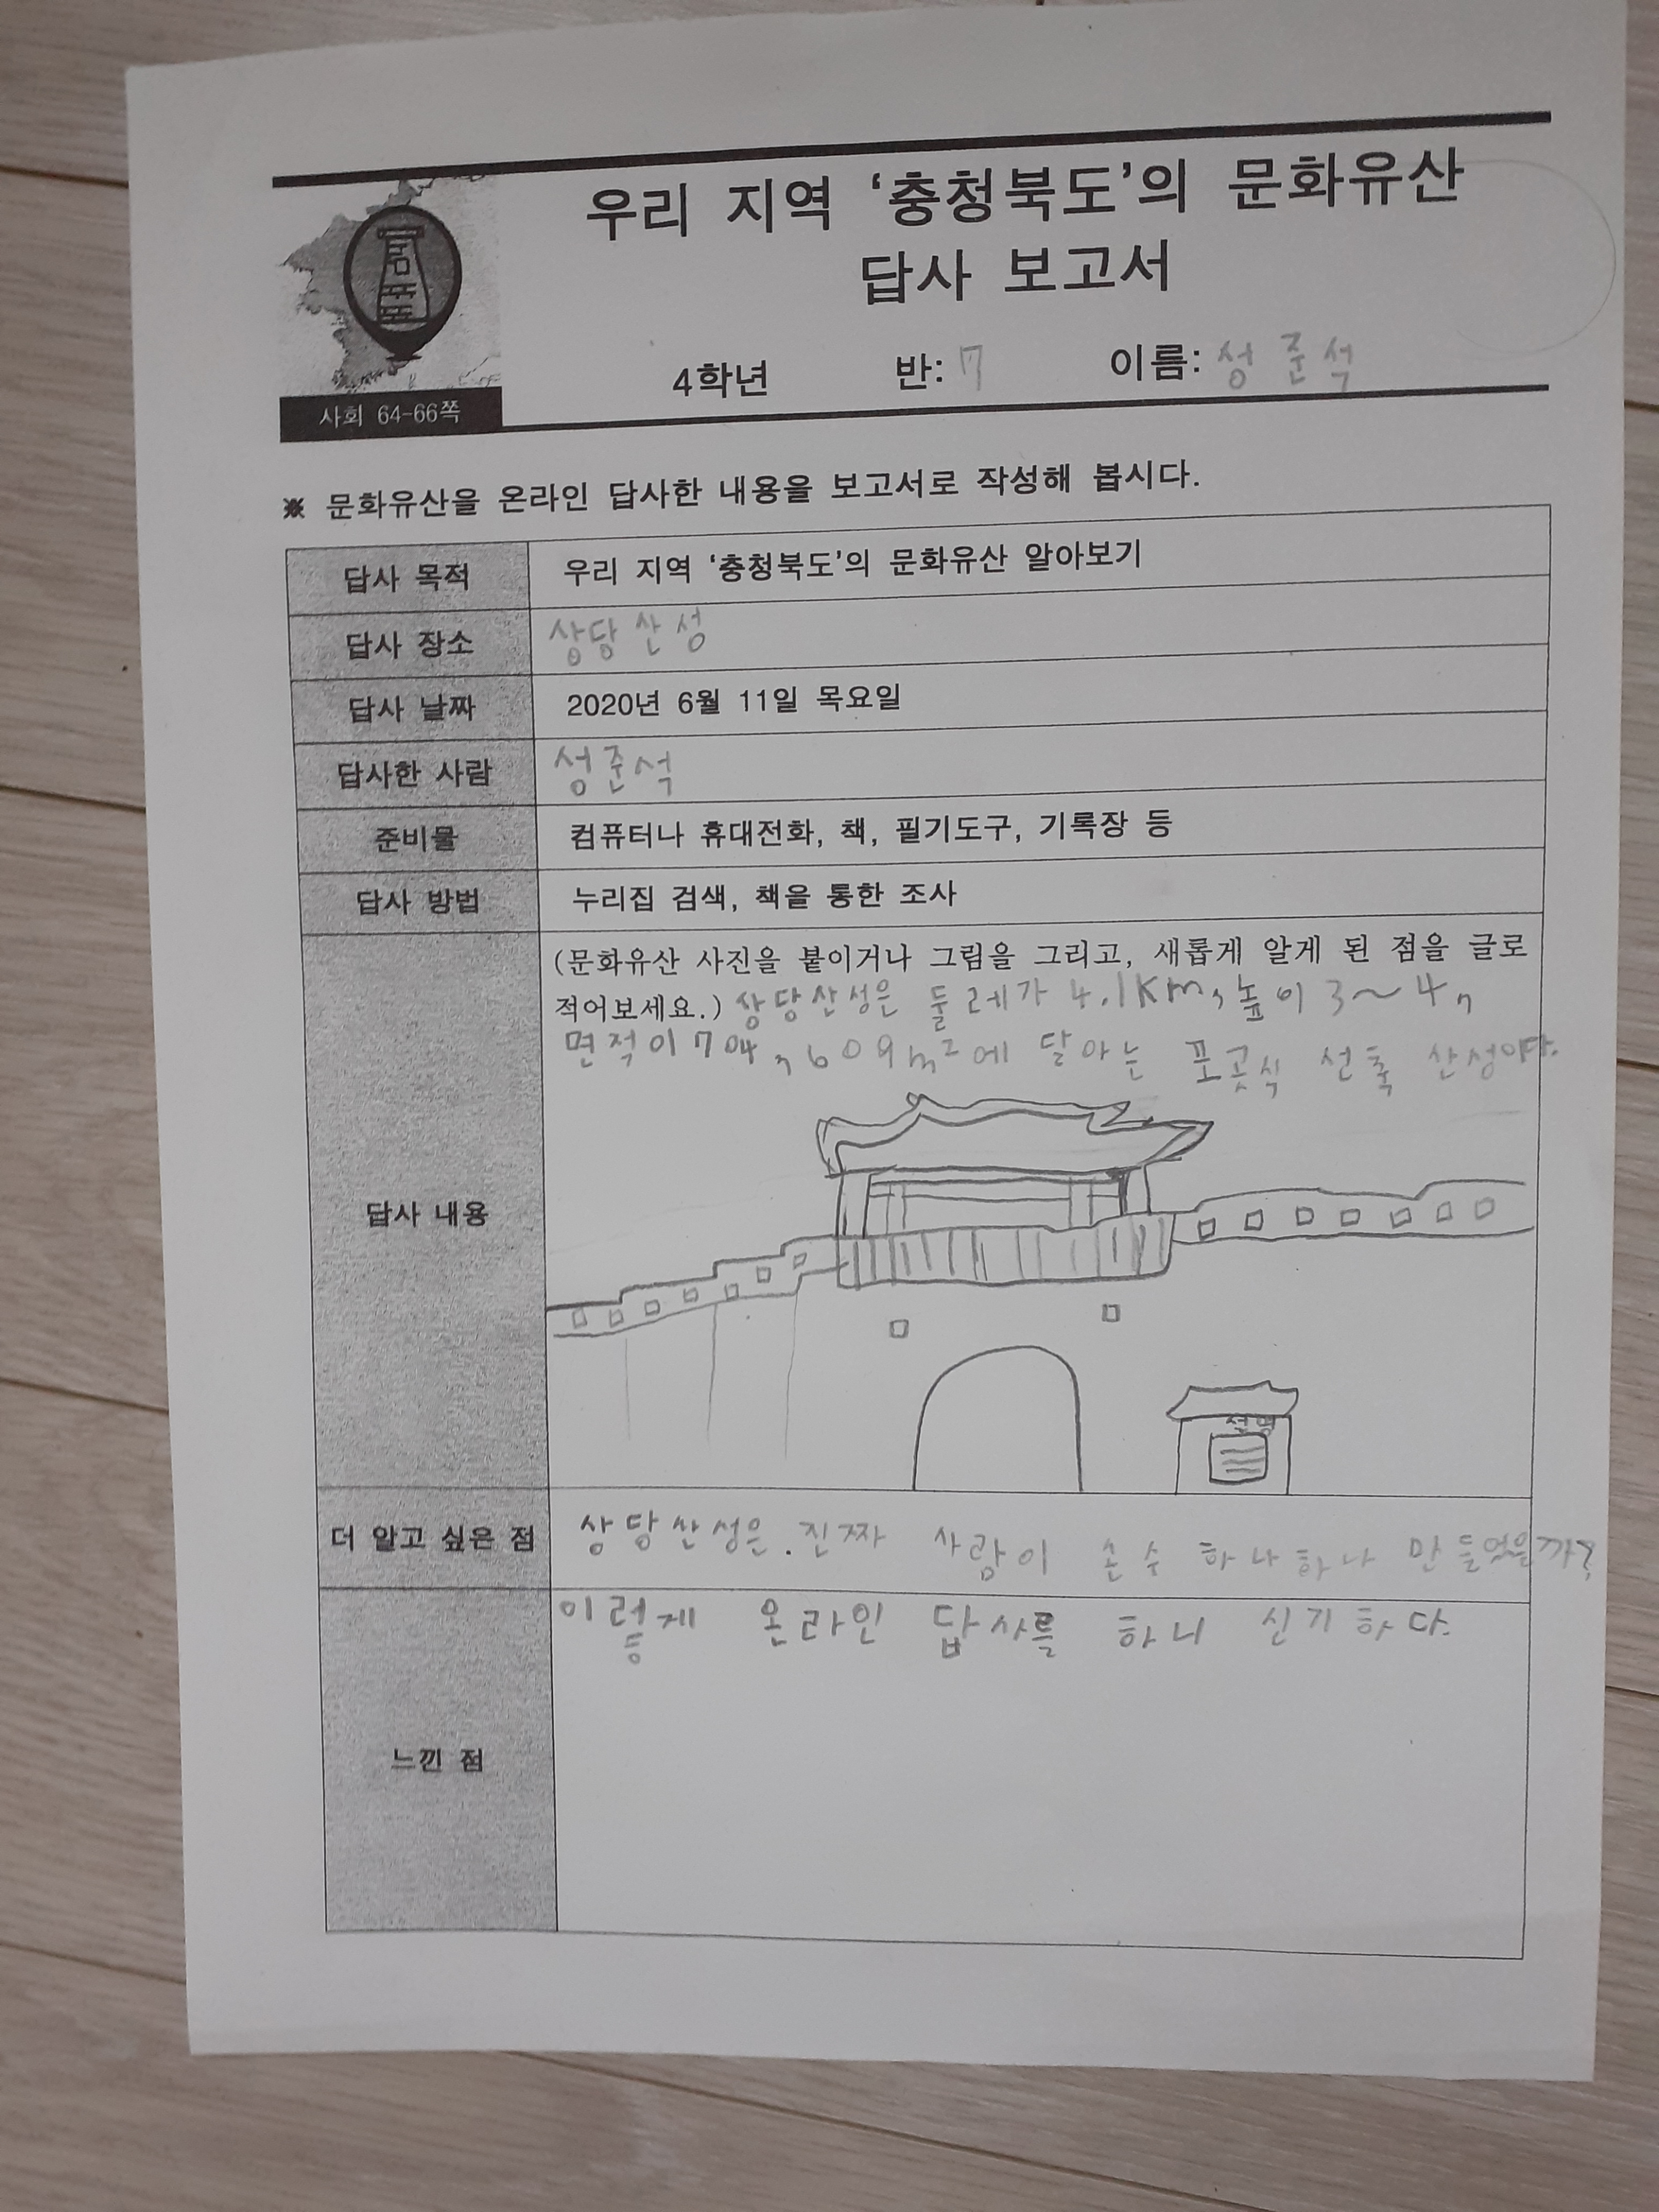 우리 지역 ‘충청북도’의 문화유산
답사 보고서
4학년 반: 7 이름: 성준석
사회 64-66쪽
※ 문화유산을 온라인 답사한 내용을 보고서로 작성해 봅시다.
답사 목적 우리 지역 ‘충청북도’의 문화유산 알아보기
답사 장소 상당산성
답사 날짜 2020년 6월 11일 목요일
답사한 사람 성준석
준비물 컴퓨터나 휴대전화, 책, 필기도구, 기록장 등
답사 방법 누리집 검색, 책을 통한 조사
답사 내용
(문화유산 사진을 붙이거나 그림을 그리고, 새롭게 알게 된 점을 글로
적어보세요.) 상당산성은 둘레가 4.1Km, 높이 3~4,
면적이 704,609m²에 달아는 포곳식 선축 산성이다.
설명
더 알고 싶은 점 상당산성은.진짜 사람이 손수 하나하나 만들었을까?
느낀 점 이렇게 온라인 답사를 하니 신기하다.